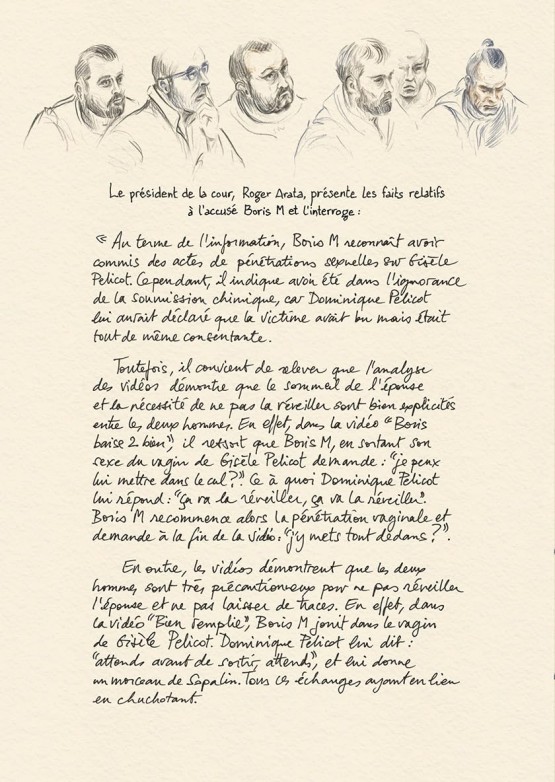 Le président de la cour, Roger Arata, présente les faits relatifs
à l'accusé Boris M et l'interroge :
« Au terme de l'information, Boris M reconnaît avoir
commis des actes de pénétrations sexuelles sur Gisèle
Pelicot. Cependant, il indique avoir été dans l'ignorance
de la soumission chimique, car Dominique Pelicot
lui aurait déclaré que la victime avait bu mais était
tout de même consentante.
Toutefois, il convient de relever que l'analyse
des vidéos démontre que le sommeil de l'épouse
et la nécessité de ne pas la réveiller sont bien explicités
entre les deux hommes. En effet, dans la vidéo "Boris
baise 2 bien", il ressort que Boris M, en sortant son
sexe du vagin de Gisèle Pelicot demande : "je peux
lui mettre dans le cal ?" Ce à quoi Dominique Pelicot
lui répond : "ça va la réveiller, ça va la réveiller".
Boris M recommence alors la pénétration vaginale et
demande à la fin de la vidéo : "j'y mets tout dedans ?".
En outre, les vidéos démontrent que les deux
hommes sont très précautionneux pour ne pas réveiller
l'épouse et ne pas laisser de traces. En effet, dans
la vidéo "Bien remplie", Boris M jouit dans le vagin
de Gisèle Pelicot. Dominique Pelicot lui dit :
"attends avant de sortir, attends", et lui donne
un morceau de Sopalin. Tous ces échanges ayant eu lieu
en chuchotant.